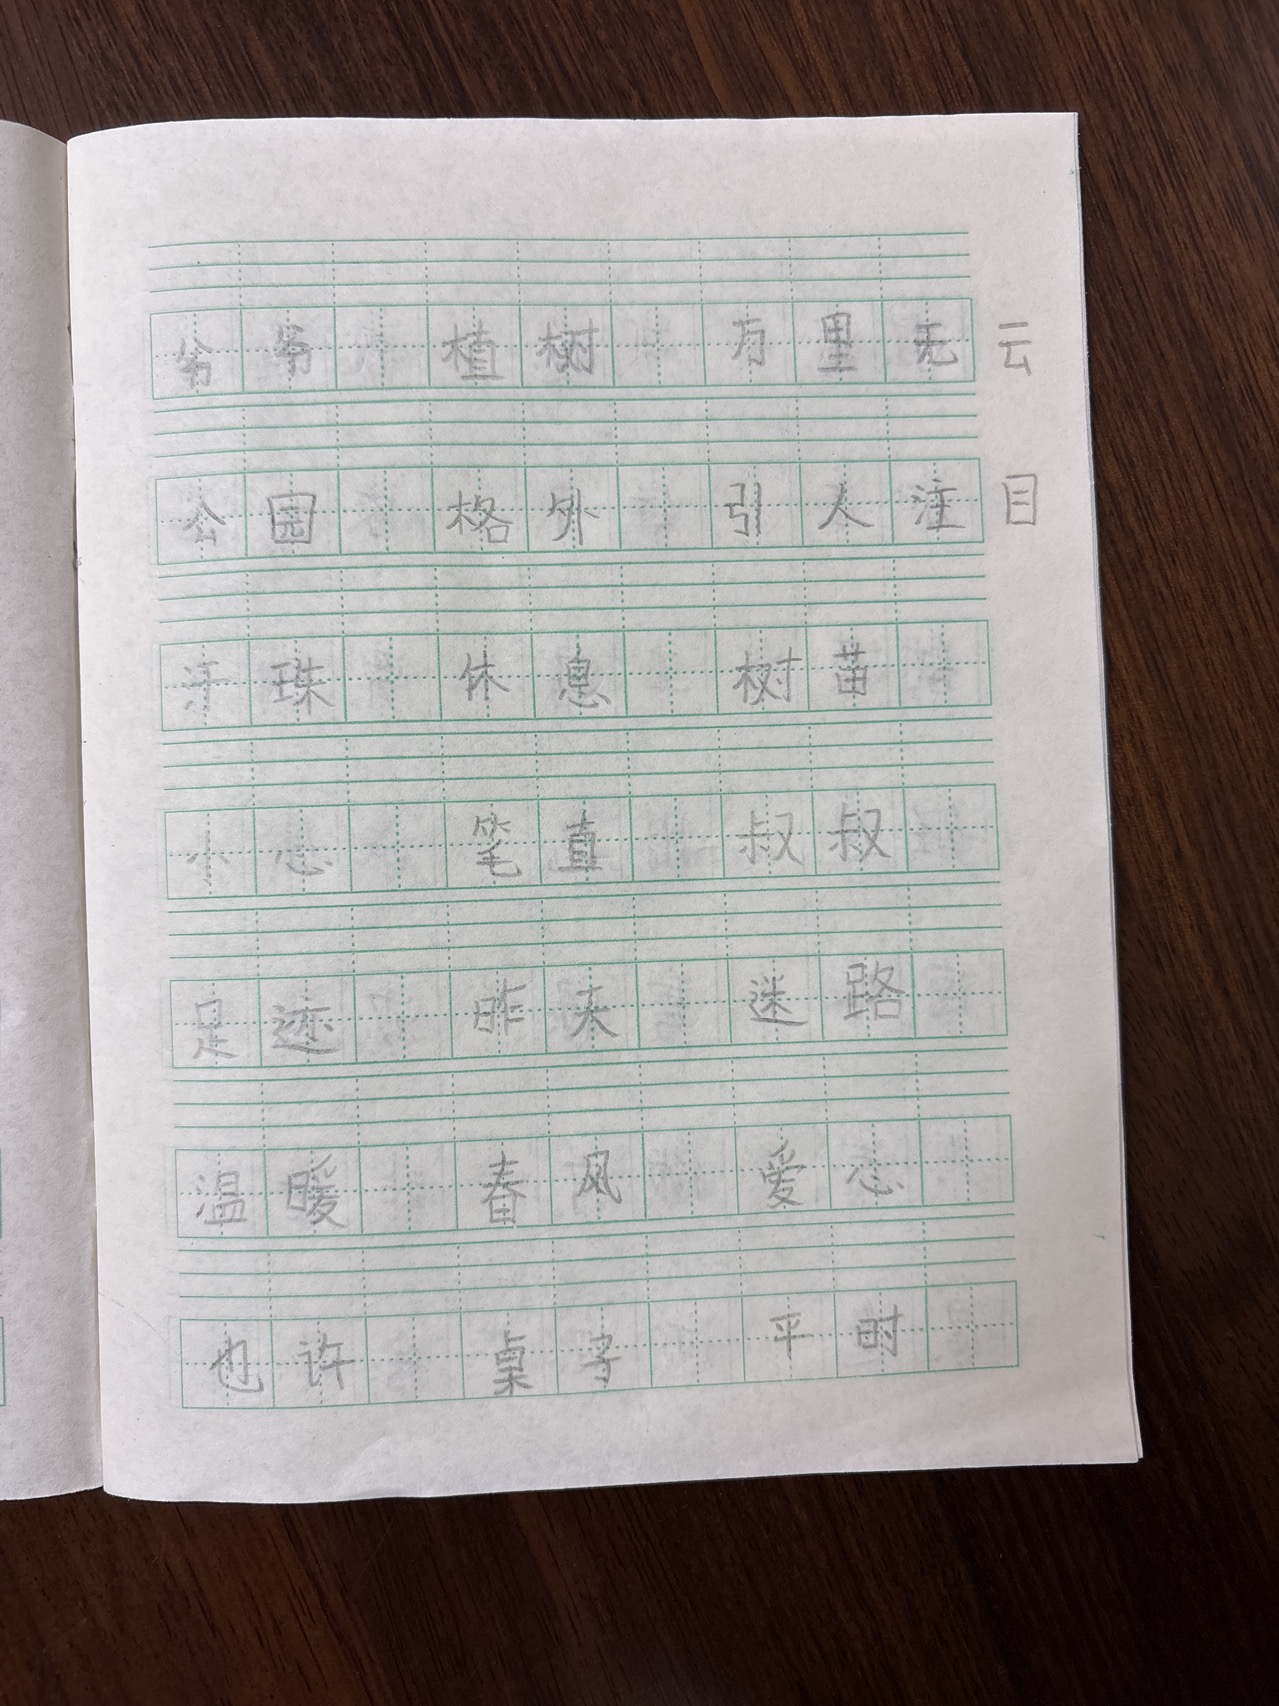 爷爷 植树 万里无云
公园 格外 引人注目
汗珠 休息 树苗
小心 笔直 叔叔
足迹 昨天 迷路
温暖 春风 爱心
也许 桌子 平时